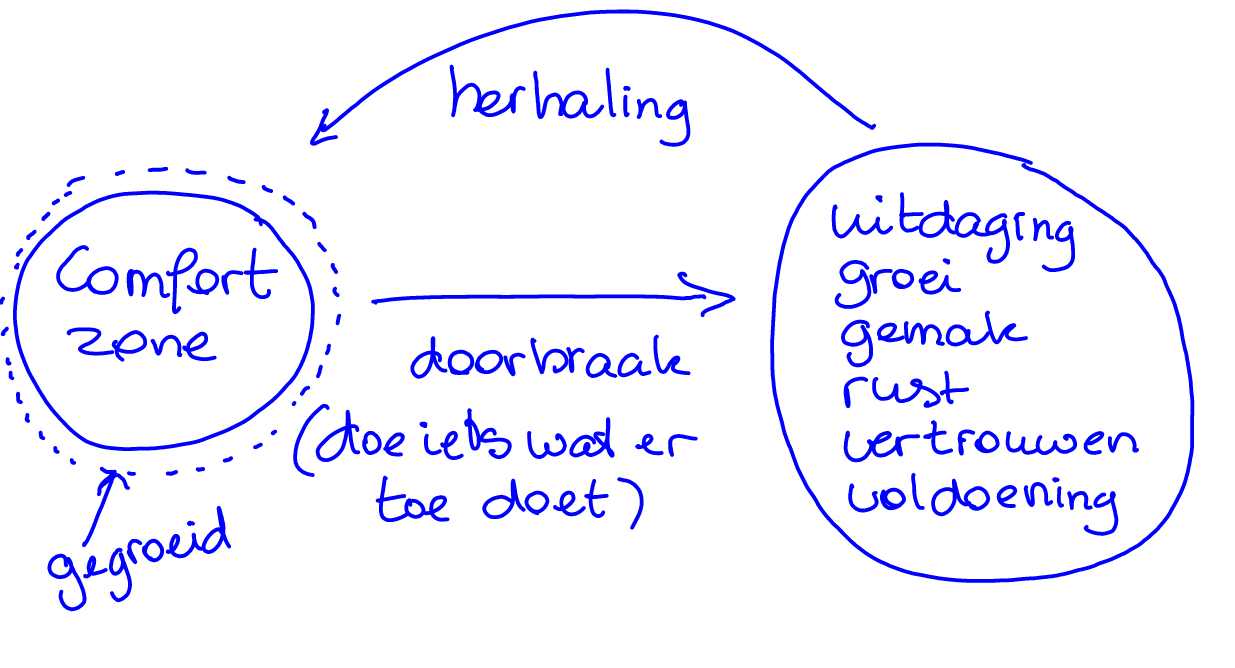 herhaling
Comfort
zone
doorbraak
(doe iets wat er
toe doet)
uitdaging
groei
gemak
rust
vertrouwen
voldoening
gegroeid